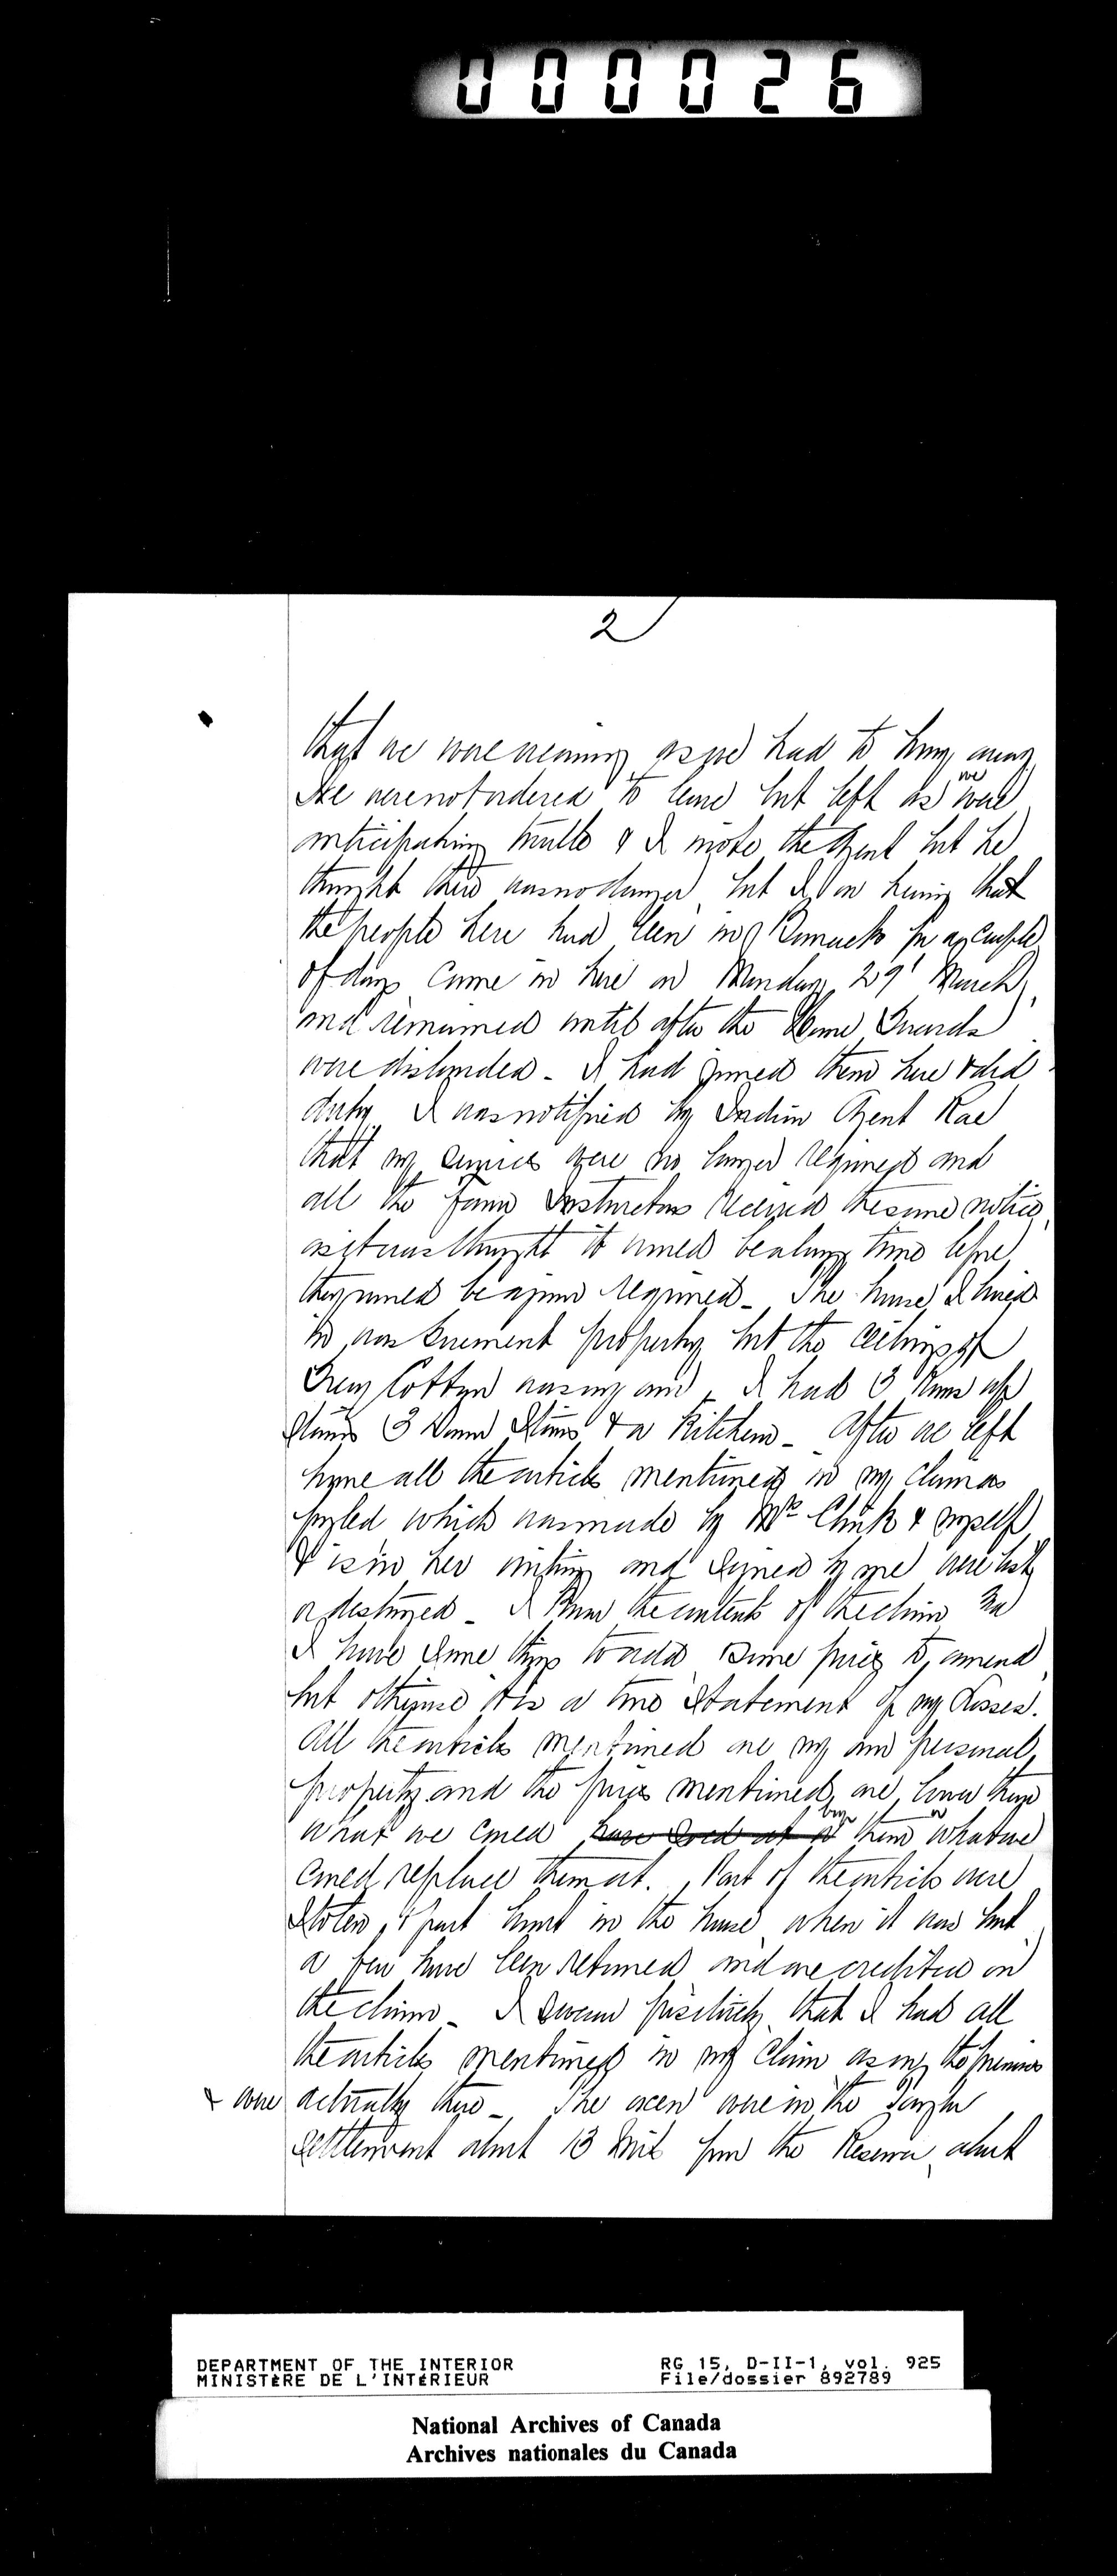 000026
2
that we were wearing as we had to hurry away
We were not ordered to leave but left as we were
anticipating trouble & I wrote the Agent but he
thought there was no danger but I on hearing that
the people here had been in Barracks for a couple
of days came in here on Monday 29' March
and remained until after the Home Guards
were disbanded - I had joined them here & did
duty I was notified by Indian Agent Rae
that my services were no longer required and
all the Farm Instructors received the same notice
as it was thought it would be a long time before
they would be again required - The house I lived
in was Government property but the ceilings of
Grey Cotton was my own, I had 3 rooms up
stairs 3 down stairs & a Kitchen - After we left
home all the articles mentioned in my claim as
fyled which was made by Mrs Clink & myself
& is in her writing and signed by me were lost
or destroyed - I know the contents of the claim
I have some things to add some prices to amend
but otherwise it is a true statement of my losses.
All the articles mentioned are my own personal
property and the prices mentioned are lower than
what we could buy them or what we
could replace them at. Part of the articles were
stolen & part burnt in the house when it was burnt
a few have been returned and are credited on
the claim - I swear positively that I had all
the articles mentioned in my claim as on the premises
& were actually there - The oxen were in the
settlement about 13 miles from the Reserve, about
DEPARTMENT OF THE INTERIOR
MINISTÈRE DE L'INTÉRIEUR
RG 15, D-II-1, vol. 925
File/dossier 892789
National Archives of Canada
Archives nationales du Canada